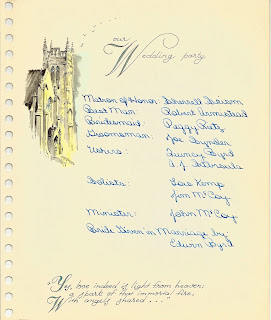 our
Wedding party
Matron of Honor Sherrell
Best Man Robert Urmistead
Bridesmaid: Peggy
Groomsman: Joe Bynsler
Ushers: Quincy Byrd
A. J.
Soloists: Lois Kemp
Jim McCoy
Minister: John McCoy
Bride Given in Marriage by:
Edwin Byrd
"Yes, love indeed is light from heaven:
a spark of that immortal fire,
With angels shared..."